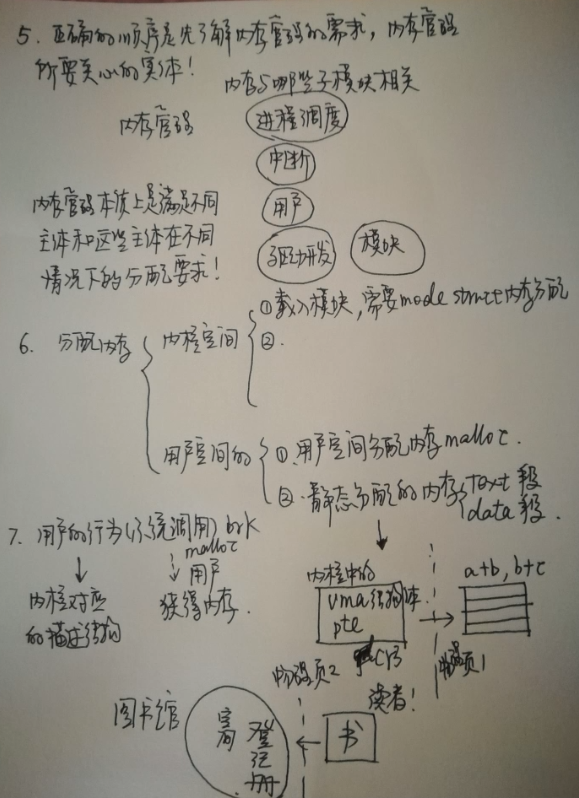 5. 正确的顺序是先了解内存管理的需求，内存管理
所要关心的实体！
内存与哪些子模块相关
内存管理
进程调度
中断
用户
驱动开发
模块
内存管理本质上是满足不同
主体和这些主体在不同
情况下的分配要求！
6. 分配内存
内核空间
①载入模块，需要mode struct内存分配
②.
用户空间的
①.用户空间分配内存malloc.
②.静态分配的内存
text段
data段.
7. 用户的行为(系统调用) brk
malloc
↓
↓用户
内核对应
的描述结构
获得内存.
内核中的
vma结构体.
pte
→
a+b, b+c
物理页2
物理页1
读者！
图书馆
空间
登记册
←
书